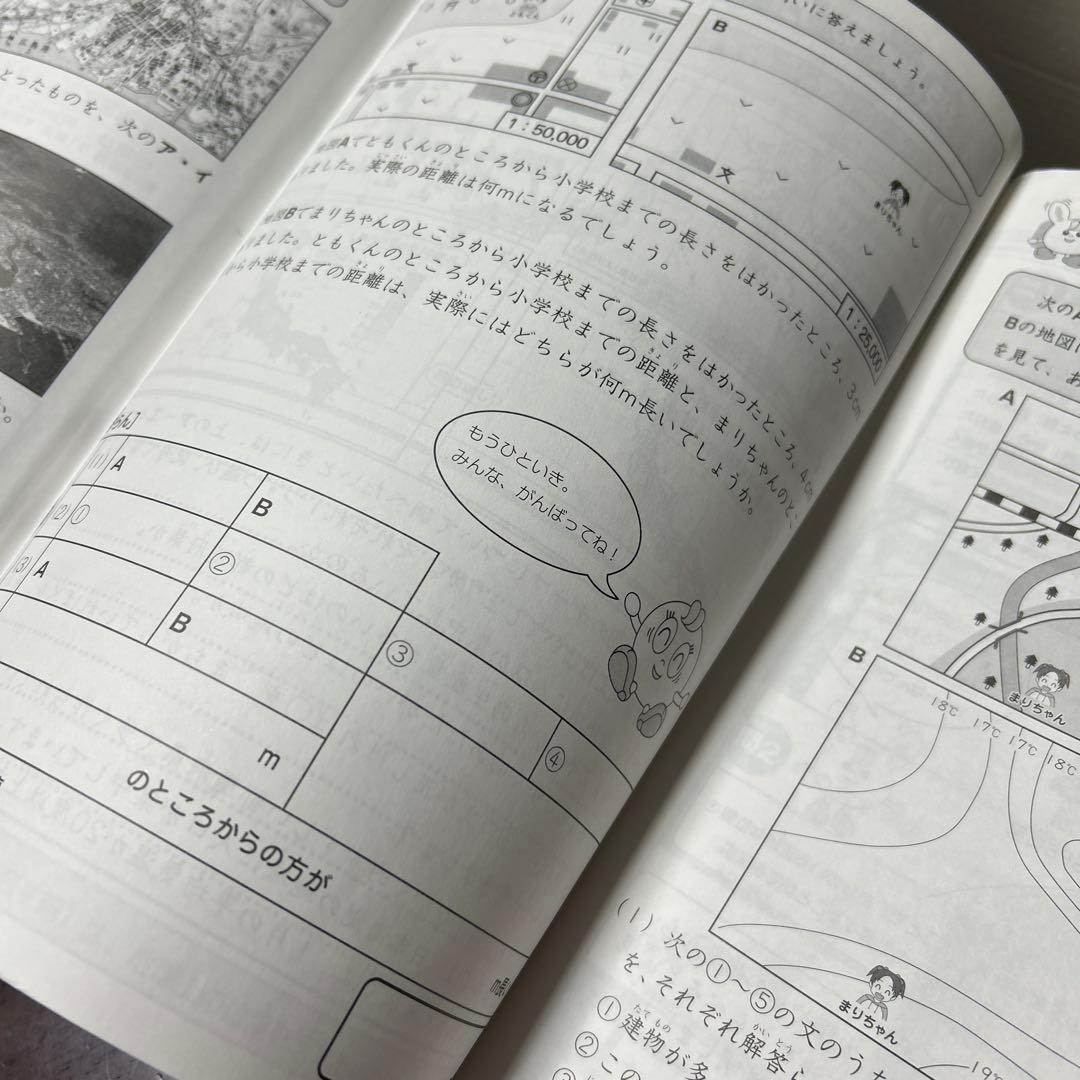 とったものを、次のア・イ
い。
いに答えましょう。
B
文
まりちゃん
1:50,000
1:25,000
図Aでともくんのところから小学校までの長さをはかったところ、3cm
ました。実際の距離は何mになるでしょう。
図Bでまりちゃんのところから小学校までの長さをはかったところ、4cm
ました。ともくんのところから小学校までの距離と、まりちゃんのと、
から小学校までの距離は、実際にはどちらが何m長いでしょうか。
らん]
もうひといき。
みんな、がんばってね!
(1) A
B
(2) ①
②
③
④
(3) A
B
m
のところからの方が
m長
次のA
Bの地図
を見て、あ
A
まりちゃん
B
18℃
17℃
17℃
18℃
まりちゃん
19℃
(1) 次の①~⑤の文のうち
を、それぞれ解答ら
① 建物が多
② この